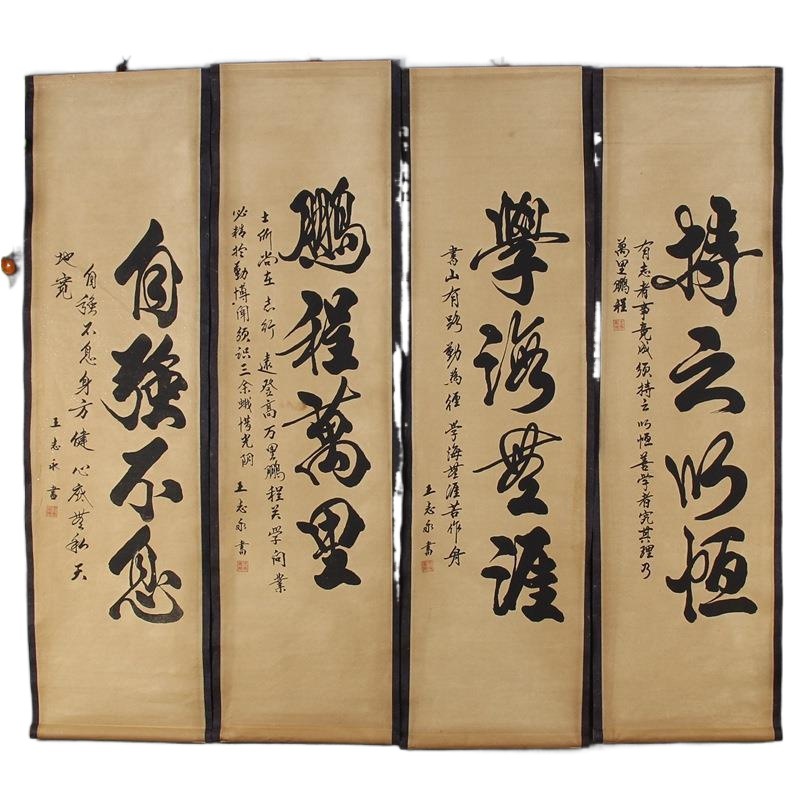 持之以恒
有志者事竟成须持之以恒善学者究其理乃
萬里鵬程
學海無涯
書山有路勤為徑學海無涯苦作舟
王志永書
鵬程萬里
士所尚在志行遠登高万里鵬程关学问業
必精於勤博聞须识三余惜光阴
王志永書
自強不息
自強不息身方健心底無私天
地宽
王志永書